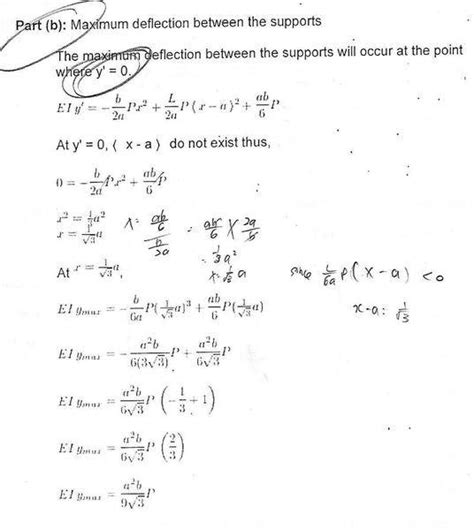 Part (b): Maximum deflection between the supports
The maximum deflection between the supports will occur at the point
where y' = 0.
EI y' = -\frac{b}{2a}Px^2 + \frac{L}{2a}P⟨x-a⟩^2 + \frac{ab}{6}P
At y' = 0, ⟨ x - a ⟩ do not exist thus,
0 = -\frac{b}{2a}Px^2 + \frac{ab}{6}P
x^2 = \frac{1}{3}a^2
x = \frac{1}{\sqrt{3}}a
x = \frac{\frac{ab}{6}}{\frac{b}{2a}} = \frac{ab}{6} X \frac{2a}{b}
= \frac{1}{3}a^2
x = \frac{1}{\sqrt{3}} a
At x = \frac{1}{\sqrt{3}}a,
since \frac{L}{6a}P(x-a) < 0
x-a = \frac{1}{\sqrt{3}}
EI y_{max} = -\frac{b}{6a}P(\frac{1}{\sqrt{3}}a)^3 + \frac{ab}{6}P(\frac{1}{\sqrt{3}}a)
EI y_{max} = -\frac{a^2b}{6(3\sqrt{3})}P + \frac{a^2b}{6\sqrt{3}}P
EI y_{max} = \frac{a^2b}{6\sqrt{3}}P (-\frac{1}{3} + 1)
EI y_{max} = \frac{a^2b}{6\sqrt{3}}P (\frac{2}{3})
EI y_{max} = \frac{a^2b}{9\sqrt{3}}P